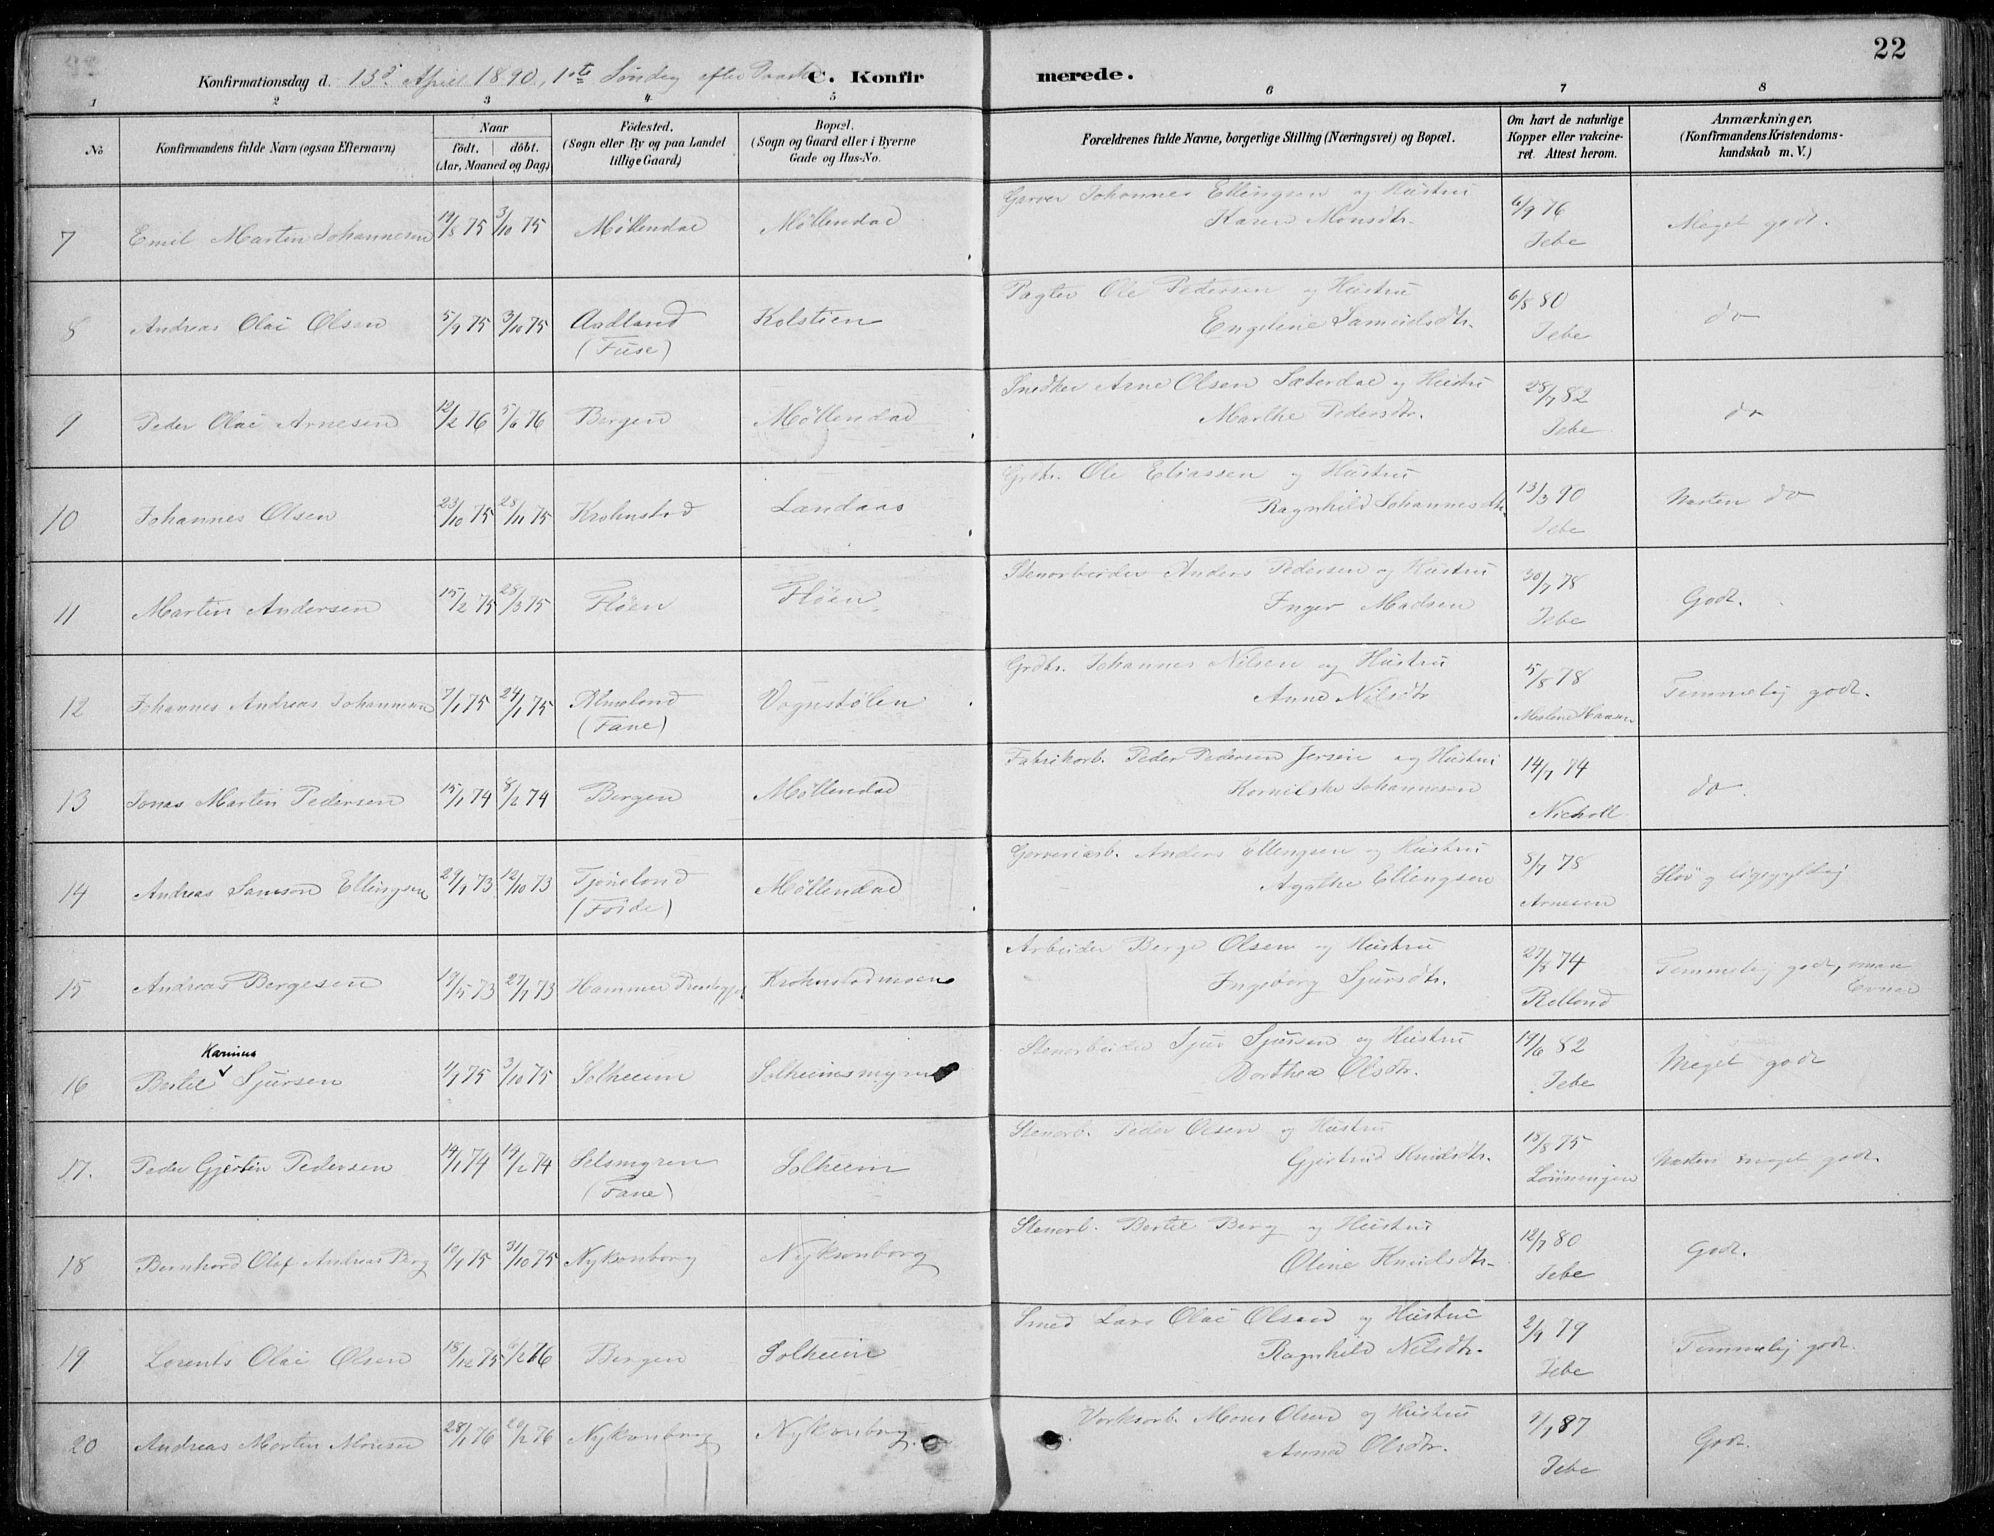 22
Konfirmationsdag d. 13de April 1890, 1ste Søndag efter Paaske C. Konfirmerede.
1 2 3 4 5 6 7 8
No
Konfirmandens fulde Navn (ogsaa Efternavn)
Naar
födt. döbt.
(Aar, Maaned og Dag)
Födested.
(Sogn eller By og paa Landet
tillige Gaard)
Bopæl.
(Sogn og Gaard eller i Byerne
Gade og Hus-No.
Forældrenes fulde Navne, borgerlige Stilling (Næringsvei) og Bopæl.
Om havt de naturlige
Kopper eller vakcine-
ret. Attest herom.
Anmærkninger,
(Konfirmandens Kristendoms-
kundskab m. V.)
7 Emil Martin Johannesen 19/8 75 3/10 75 Møllendal Møllendal Garver Johannes Ellingsen og Hustru
Karen Monsdtr. 6/9 76
Jebe Meget godt.
8 Andreas Olai Olsen 5/9 75 3/10 75 Aadland
(Fuse) Kolstien Pagter Ole Pedersen og Hustru
Engeline Samuelsdtr. 6/8 80
Jebe do
9 Peder Olai Arnesen 12/2 76 5/6 76 Bergen Møllendal Snedker Arne Olsen Sæterdal og Hustru
Marthe Pedersdtr. 28/7 82
Jebe do
10 Johannes Olsen 23/10 75 28/11 75 Krohnstad Landaas Grdbr. Ole Eliassen og Hustru
Ragnhild Johannesdtr. 13/3 90
Jebe Næsten do
11 Martin Andersen 15/2 75 28/3 75 Fløen Fløen Stenarbeider Anders Pedersen og Hustru
Inger Madsen 30/7 78
Jebe Godt.
12 Johannes Andreas Johannesen 7/1 75 24/1 75 Almeland
(Fane) Vognstølen Grdbr. Johannes Nilsen og Hustru
Anne Nilsdtr 5/8 78
Temmelig godt.
13 Jonas Martin Pedersen 15/1 74 8/2 74 Bergen Møllendal Fabrikarb. Peder Pedersen og Hustru
Johannesen 14/7 74
Nicholl do
14 Andreas Samson Ellingsen 29/9 73 12/10 73 Tjoneland
Møllendal Garveriarb. Anders Ellingsen og Hustru
Agathe Ellingsen 8/7 78
Arnesen Sløv og ligegyldig
15 Andreas Bergesen 19/5 73 27/7 73 Hammer Krohnstadmoen Arbeider Berge Olsen og Hustru
Ingeborg Sjursdtr. 27/8 74
Temmelig godt, smaa
Evner
16 Bertel Karinus Sjursen 4/9 75 3/10 75 Solheim Solheimsmyren Stenarbeider Sjur Sjursen og Hustru
Dorthea Olsdtr. 19/6 82
Jebe Meget godt
17. Peder Gjertin Pedersen 14/1 74 14/2 74 Selsmyren
(Fane) Solheim Stenarb. Peder Olsen og Hustru
Gjertrud Knudsdtr. 18/8 75
Lønningen Næsten meget godt.
18 Bernhard Olaf Andreas Berg 10/9 75 31/10 75 Nykronborg Nykronborg Stenarb. Bertel Berg og Hustru
Oline Knudsdtr. 12/7 80
Jebe Godt.
19 Lorents Olai Olsen 18/12 75 6/2 76 Bergen Solheim Smed Lars Olai Olsen og Hustru
Ragnhild Nilsdtr. 2/9 79
Jebe Temmelig godt.
20 Andreas Martin Monsen 28/1 76 20/2 76 Nykronborg Nykronborg Værksarb. Mons Olsen og Hustru
Anna Olsdtr. 7/7 87
Jebe Godt.